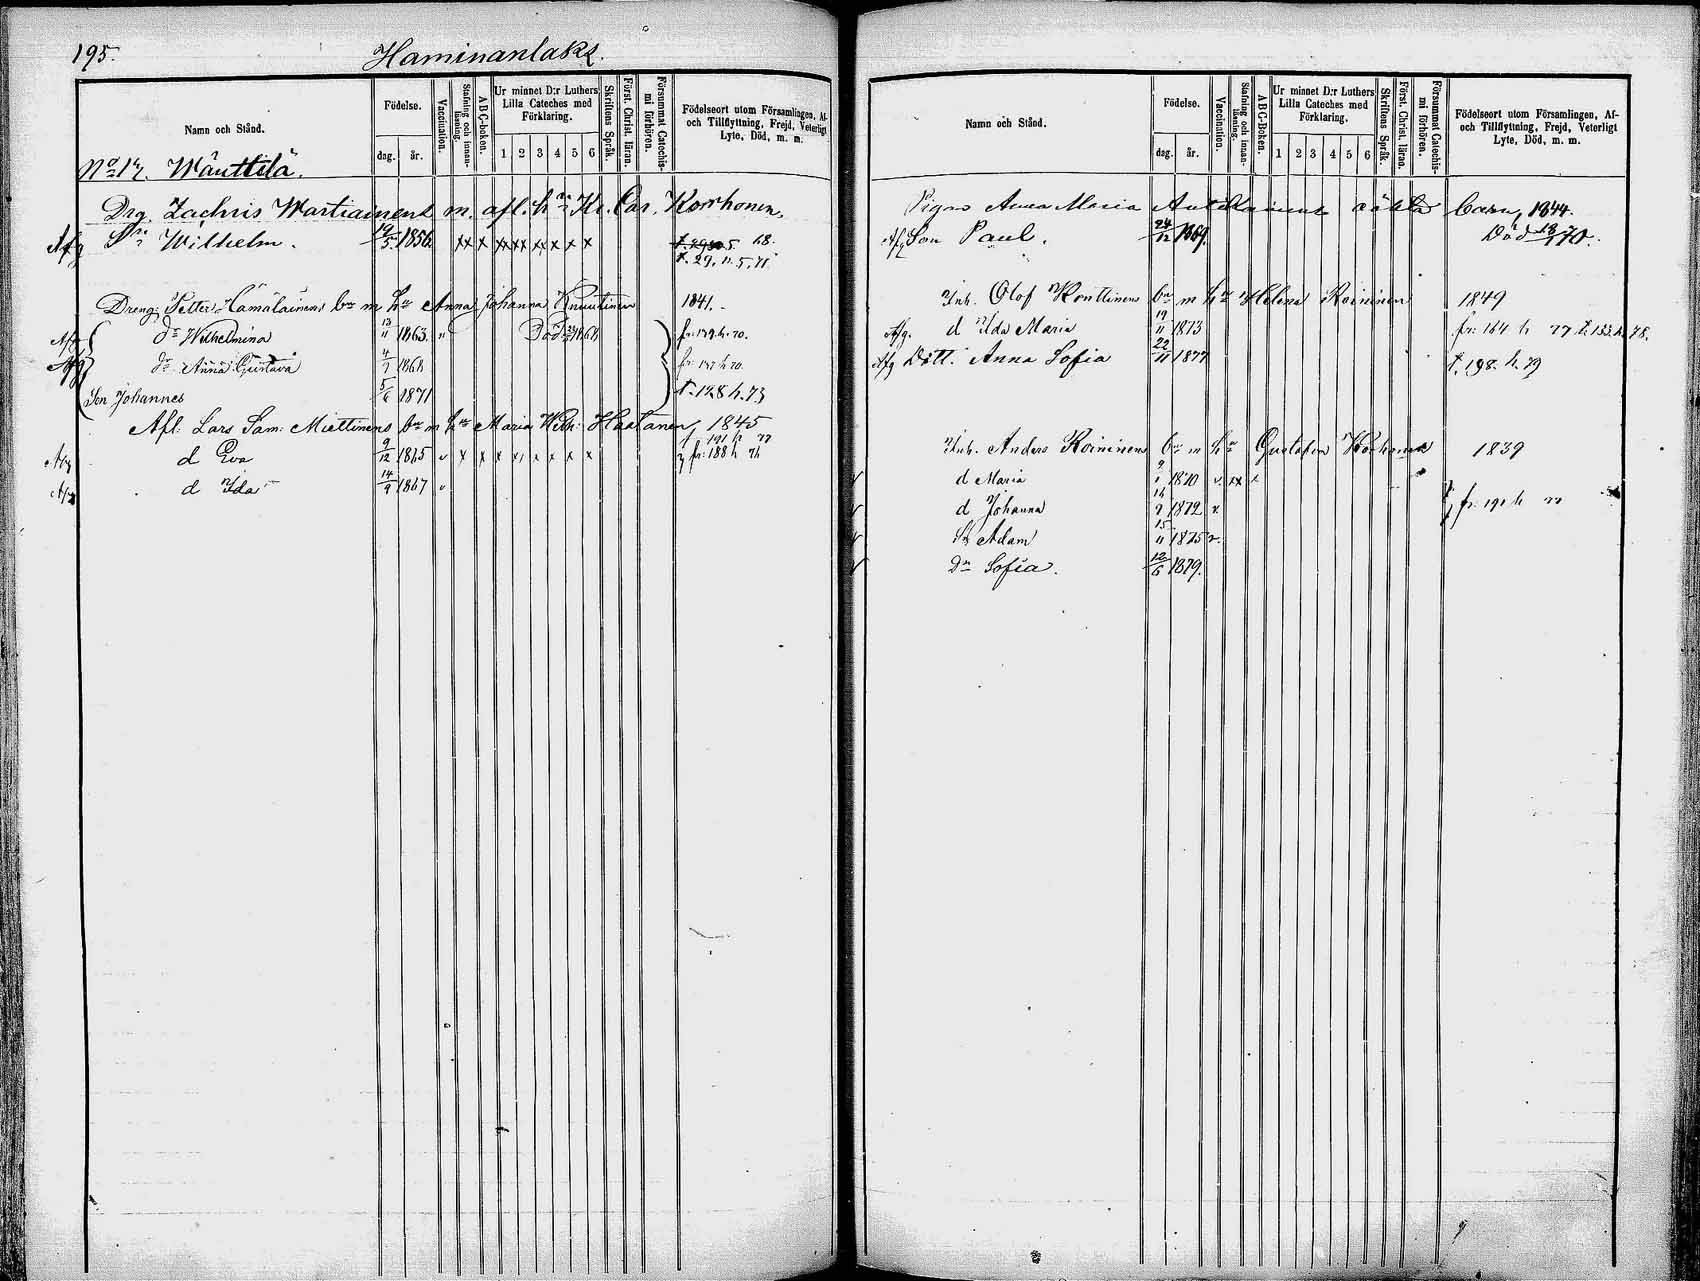 195.
Haminanlaks.
Namn och Stånd.
Födelse.
dag.
år.
Vaccination.
Stafning och innan-läsning.
A B C-boken.
Ur minnet D:r Luthers Lilla Cateches med Förklaring.
1 2 3 4 5 6
Skriftens Språk.
Först. Christ. läran.
Försummat Catechis-mi förhören.
Födelseort utom Församlingen, Af- och Tillflyttning, Frejd, Veterligt Lyte, Död, m. m.
No 17. Mänttilä.
Drg. Zachris Martiainens m. afl. hu Kr. Car. Korhonen.
Afg Sn Wilhelm. 19/5 1856. xx x xx xx xx x x x 68.
t. 29. n. 5. 71.
Dreng: Petter Hämäläinens bn m hu Anna Johanna Knuutinen 1841.
Afg dr Wilhelmina 13/11 1863. Död 1868 fr: 179. h. 70.
Afg dr Anna Gustava 4/7 1868 h 70.
Son Johannes 5/6 1871 t. 128 h. 73
Afl: Lars Sam: Miettinens bn m hu Maria Wilh: Haatanen, 1845
t 191 h 77
Afg d Eva 9/12 1865 v x x x x x x x x fr: 188 h 76
Afg d Ida 14/9 1867 v
Namn och Stånd.
Födelse.
dag.
år.
Vaccination.
Stafning och innan-läsning.
A B C-boken.
Ur minnet D:r Luthers Lilla Cateches med Förklaring.
1 2 3 4 5 6
Skriftens Språk.
Först. Christ. läran.
Försummat Catechis-mi förhören.
Födelseort utom Församlingen, Af- och Tillflyttning, Frejd, Veterligt Lyte, Död, m. m.
Pigan Anna Maria oäkta barn, 1844.
Afg Son Paul. 24/12 1869. Död 70.
Inh. Olof Konttinens bn m hu Helena Koininen 1849
Afg. d Ida Maria 19/11 1873 fr: 164 h 77 t. 153 h. 78.
Afg Dott. Anna Sofia 22/11 1877 t. 198. h. 79
Inh. Anders Koininens bn m hu Gustafva Korhonen 1839
v d Maria 1870 v. xx x
v d Johanna 16/9 1872 v. fr: 191 h 77
v Sn Adam 15/11 1875 v.
v Dr Sofia. 12/6 1879.